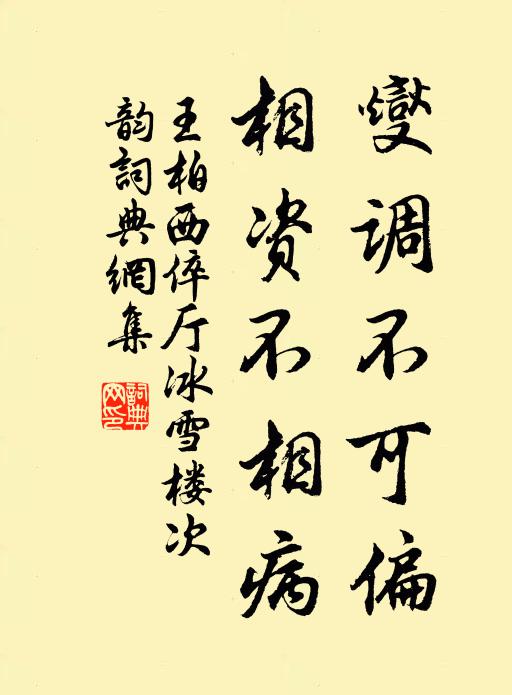 燮调不可偏
相资不相病
王柏西倅厅冰雪楼次
韵詞典網集
詞典
网印